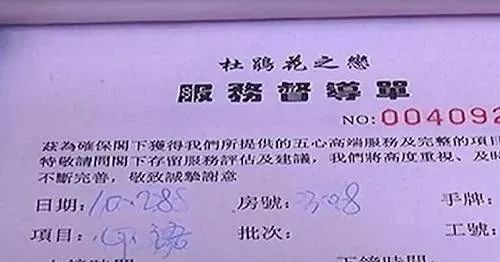 杜鵑花之戀
服務督導單
NO: 004092
茲為確保閣下獲得我們所提供的五心高端服務及完整的項目
特敬請閣下存留服務評估及建議，我們將高度重視、及時
不斷完善，敬致誠摯謝意
日期: 房號: 手牌:
項目: 批次: 工號: